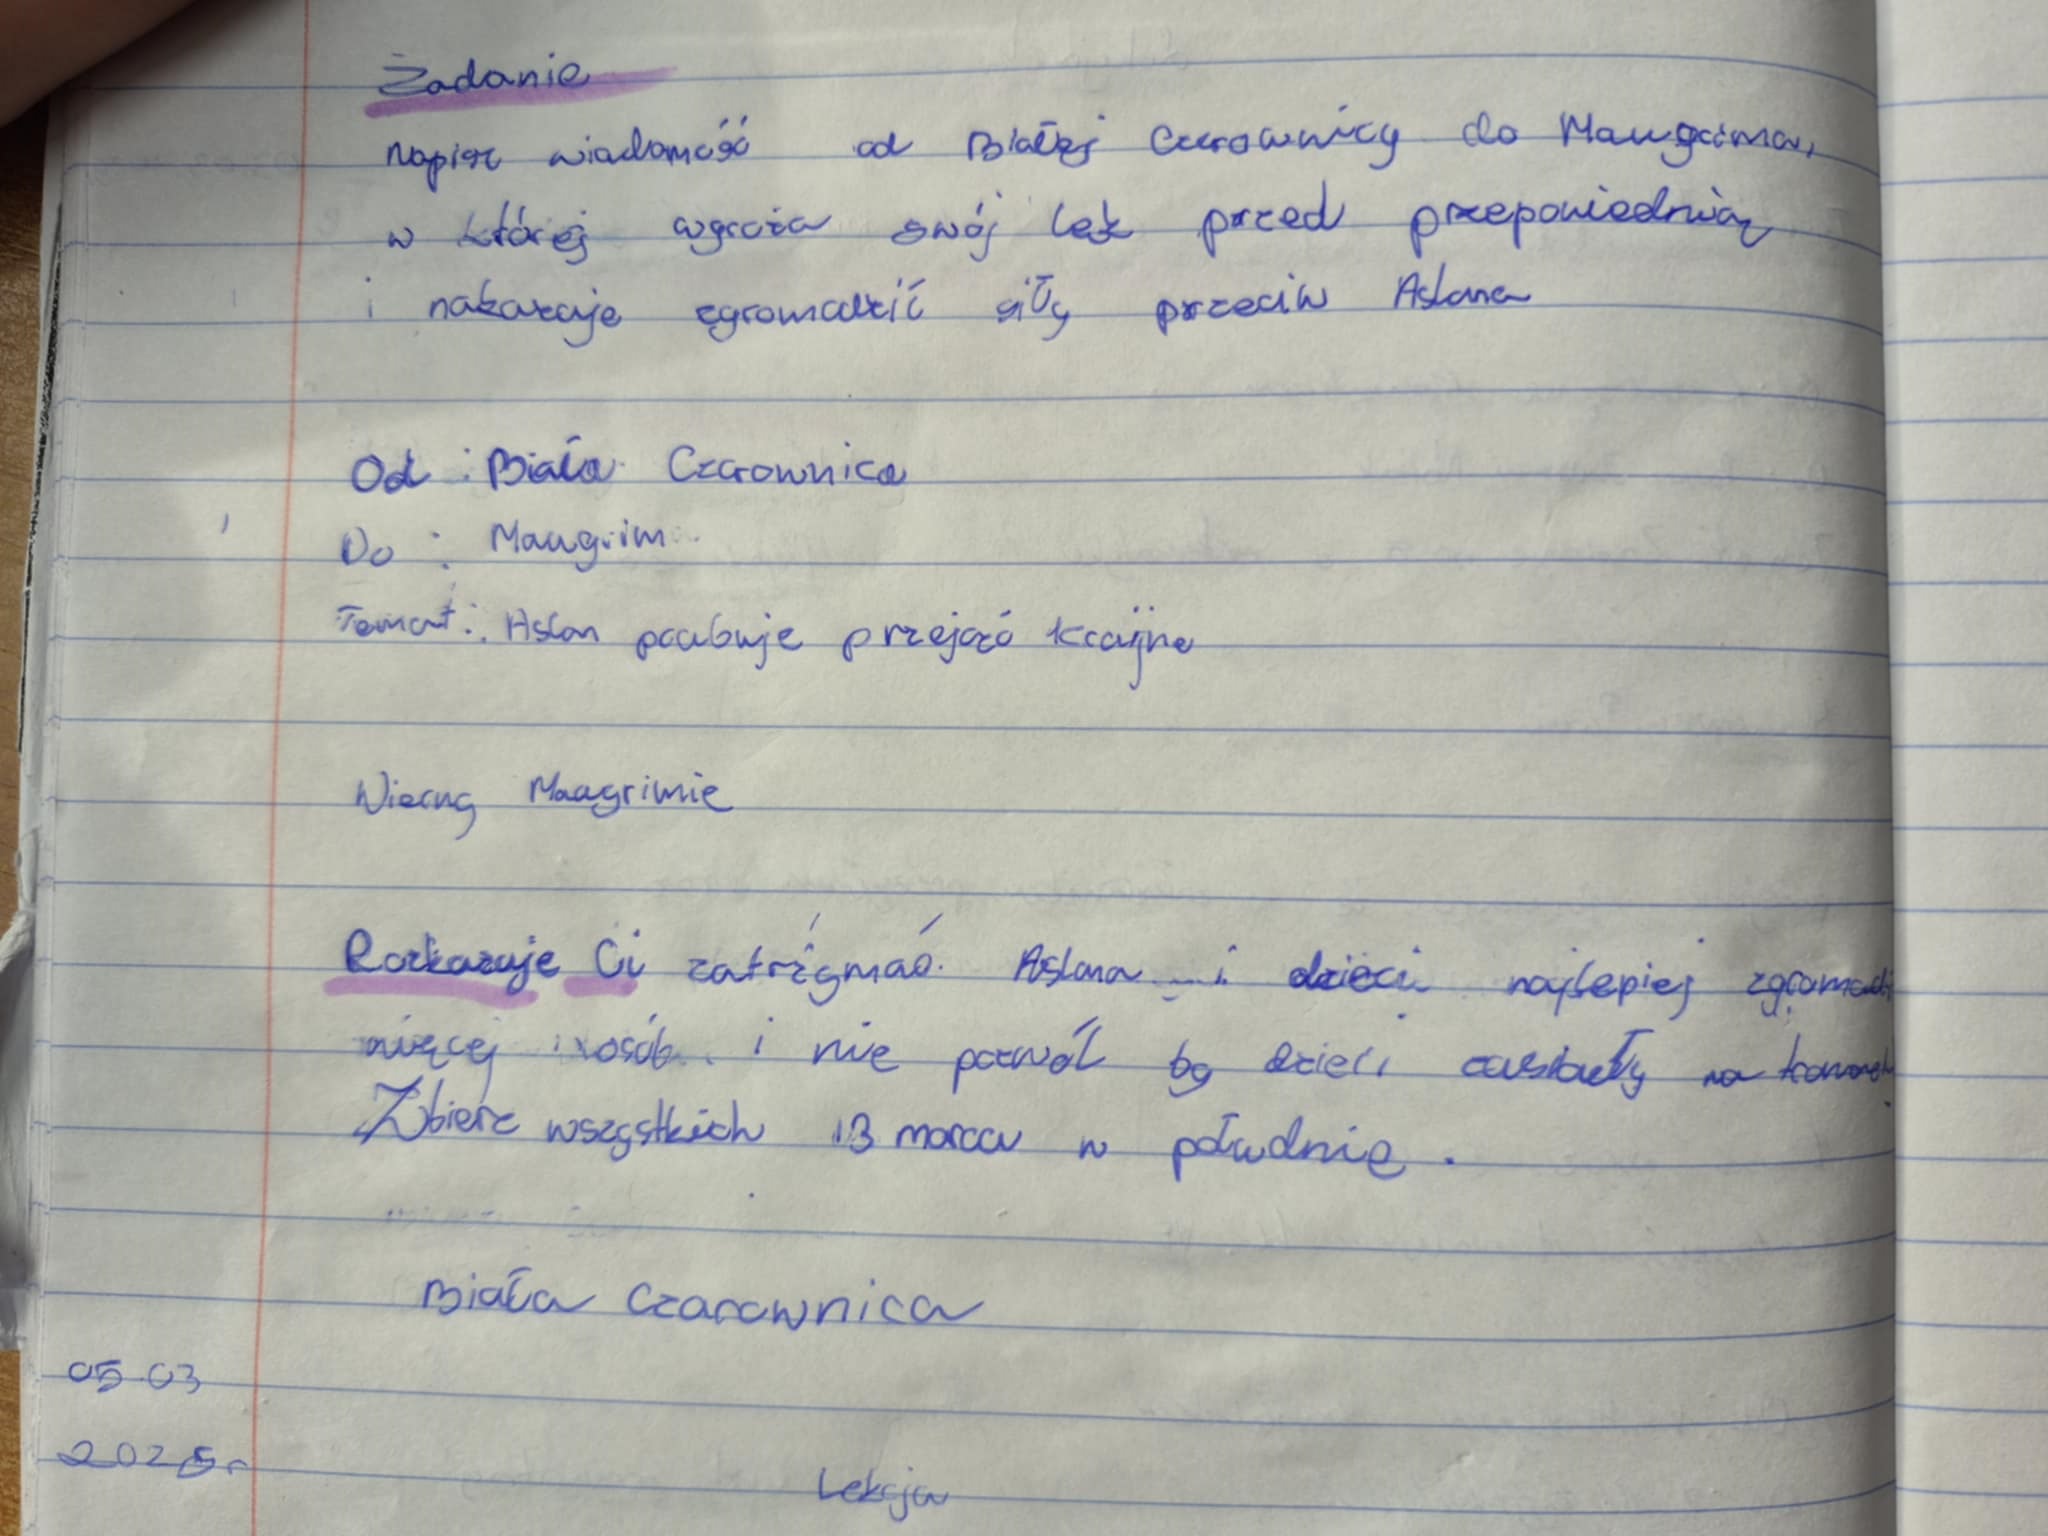 Zadanie
Napisz wiadomość od Białej Czarownicy do Maugrima,
w której wyraża swój lęk przed przepowiednią
i nakazuje zgromadzić siły przeciw Aslana
Od : Biała Czarownica
Do : Maugrim
Temat : Aslan próbuje przejąć krainę
Wierny Maugrimie
Rozkazuję Ci zatrzymać Aslana i dzieci najlepiej zgromadź
więcej osób i nie pozwól by dzieci zasiadły na
Zbierz wszystkich 13 marca w południe.
Biała Czarownica
05.03
2025r
Lekcja